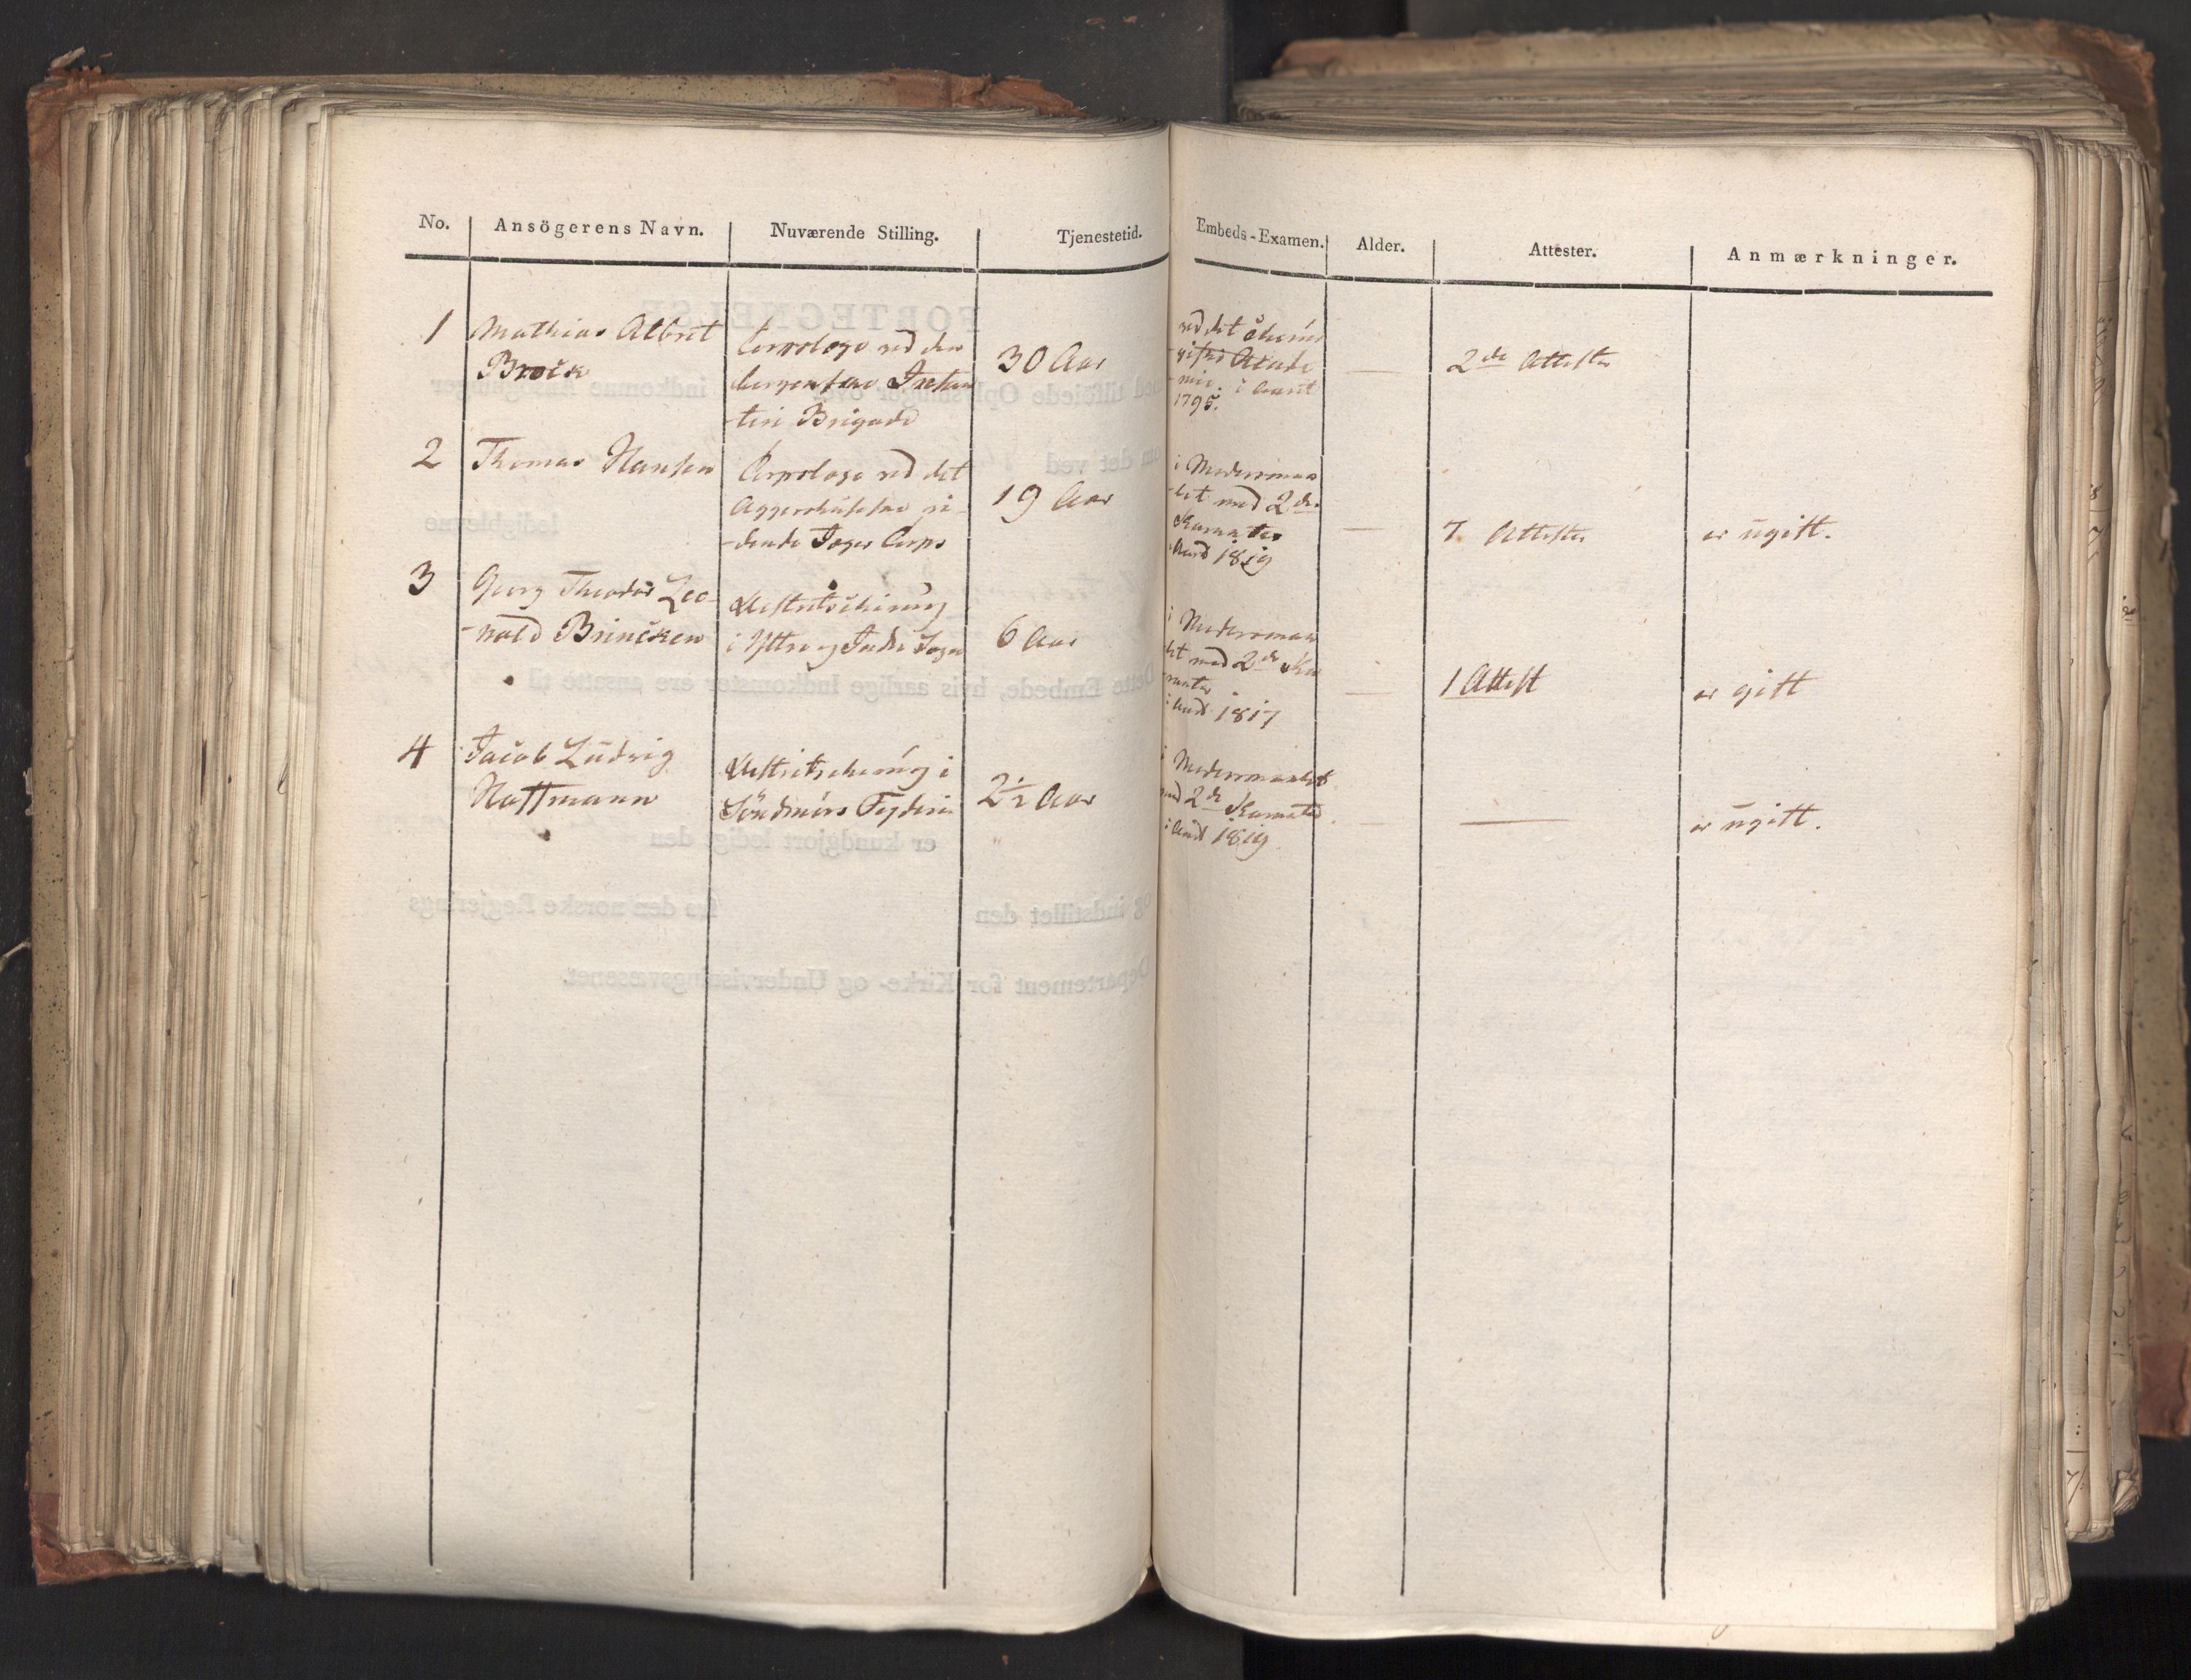 No. Ansögerens Navn. Nuværende Stilling. Tjenestetid. Embeds-Examen. Alder. Attester. Anmærkninger.
1
Mathias Albret
Brock
Corpslæge ved den
bergenske Infan
-teri Brigade
30 Aar
ved det Chirur
-giske Acade
-mie i Aaret
1795.
—
2de Attester
2
Thomas Hansen
Corpslæge ved det
Aggershusske ri-
-dende Jæger Corps
19 Aar
i Modersmaa
-let med 2den
Karacter
Aaret 1819
—
7 Attester
er ugift.
3
Georg Theodor Leo-
-pold Brincken
Districtschirurg
i Yttre og Indre Sogn
6 Aar
i Modersmaa
let med 2de Ka
racter
i Aaret 1817
—
1 Attest
er gift
4
Jacob Ludvig
Hoffmann
Districtschirurg i
Söndmörs Fogderie
2½ Aar
i Modersmaalet
med 2de Karacter
i Aaret 1819
—
—
er ugift.